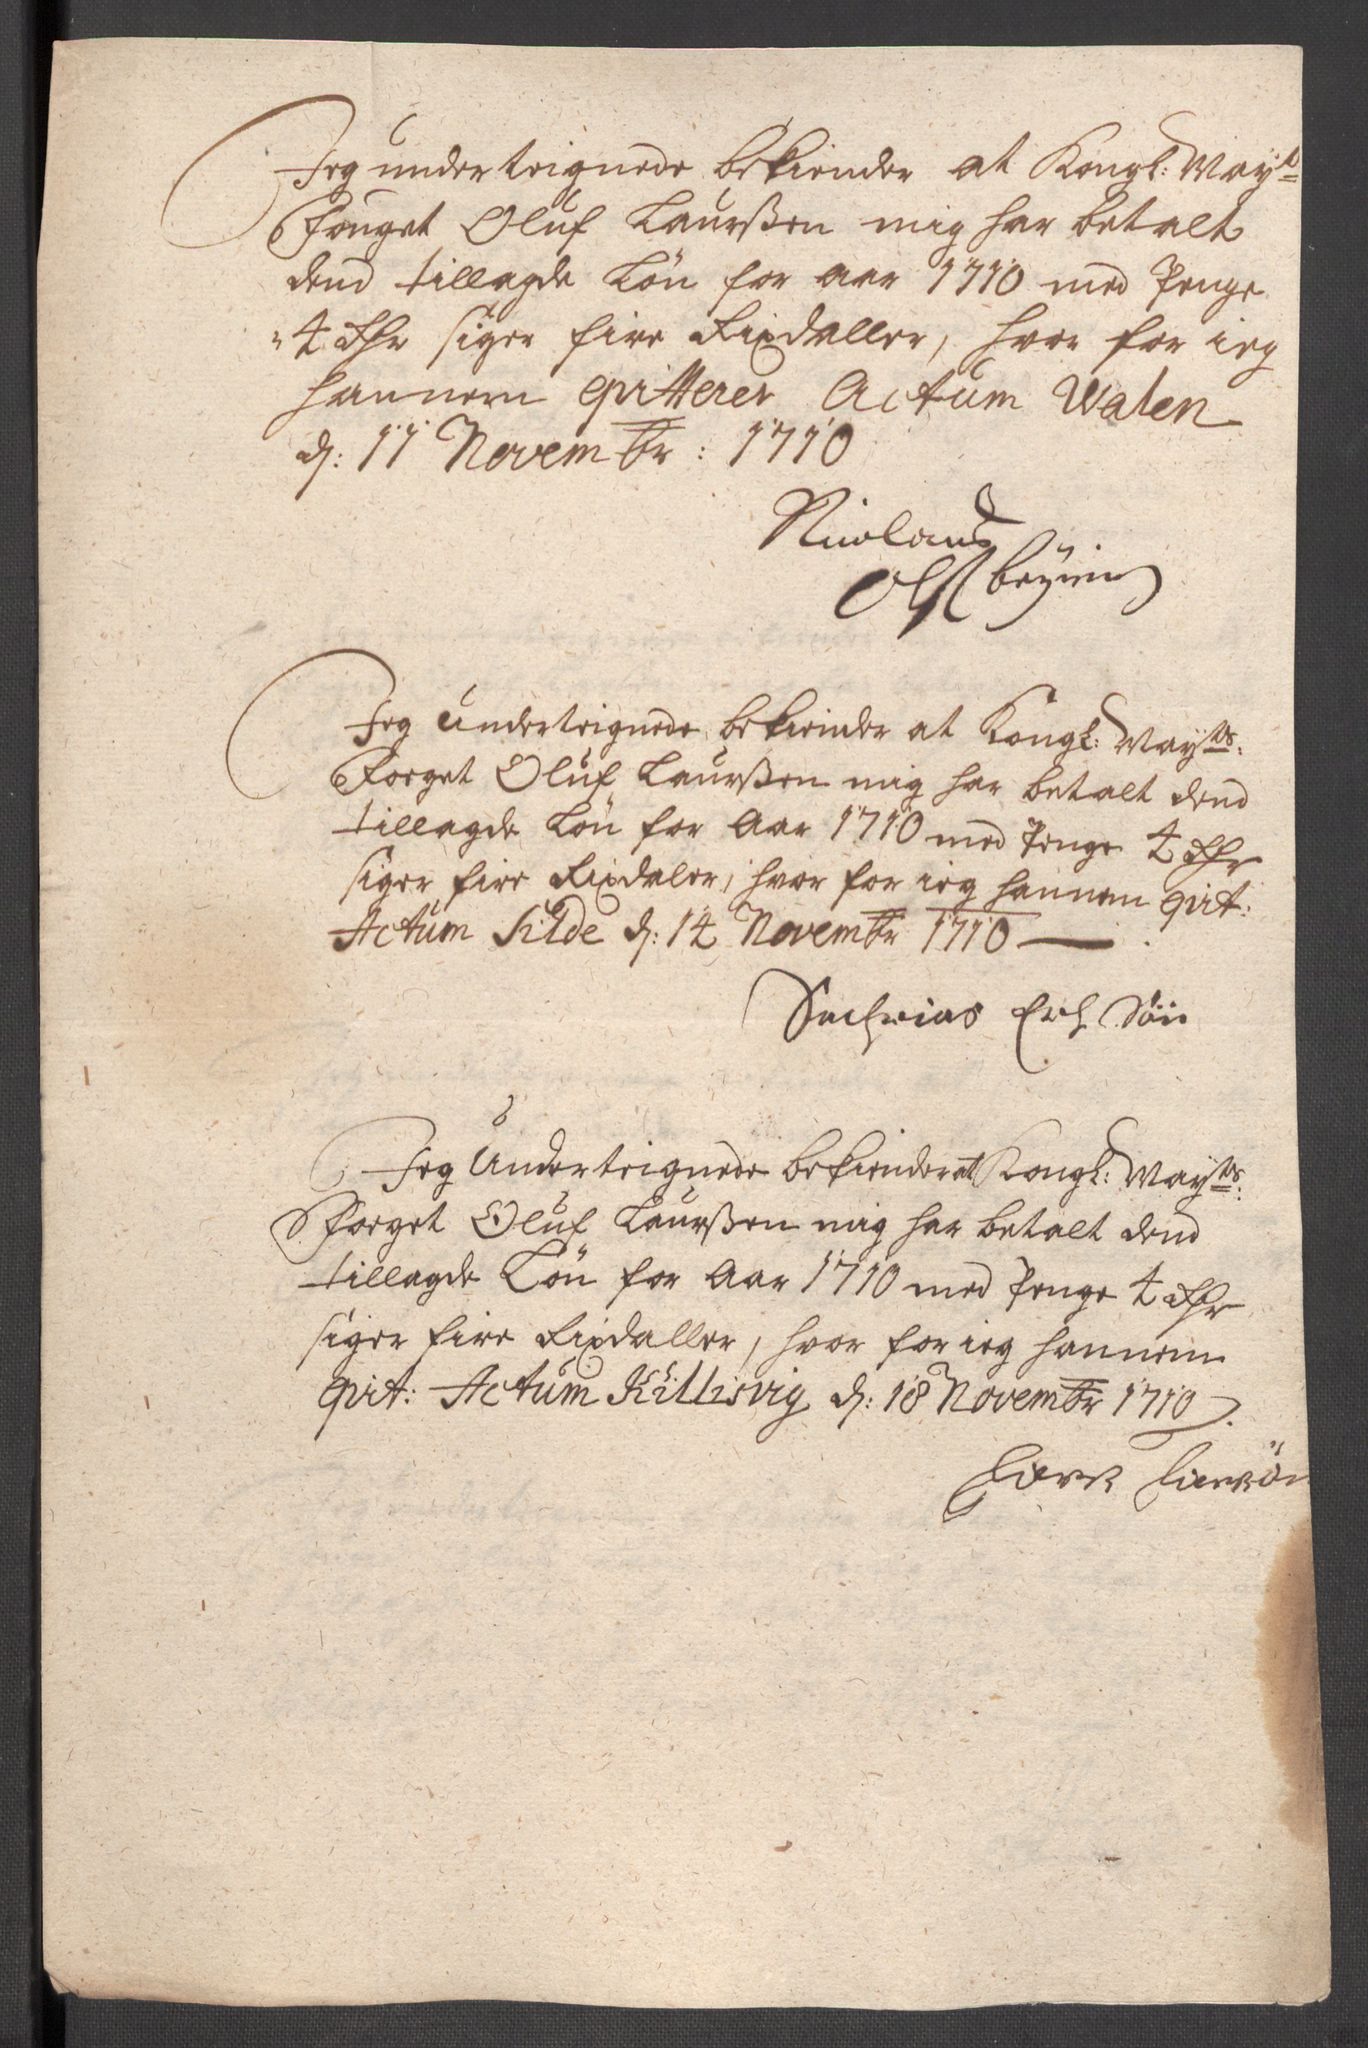 Jeg underteignede bekiender at Kongl: May:ts
Fouget Oluf Laurßen mig har betalt
dend tillagde Løn for aar 1710 med Penge
4 Rdr siger fire Rixdaller, hvor for ieg
hannem qvitterer Actum Walen
d: 11 Novembr: 1710
Nicolaus
Jeg Underteignede bekiender at Kongl: May:ts
Foeget Oluf Laurßen mig har betalt dend
tillagde Løn for Aar 1710 med Penge 4 Rdr
siger fire Rixdaler, hvor for ieg hannem qvit:
Actum Kilde d: 14 Novembr 1710
Sachrias
Jeg Underteignede bekiender at Kongl: May:ts
Foeget Oluf Laurßen mig har betalt dend
tillagde Løn for Aar 1710 med Penge 4 Rdr
siger fire Rixdaller, hvor for ieg hannem
qvit: Actum Killisvig d: 18 Novembr 1710